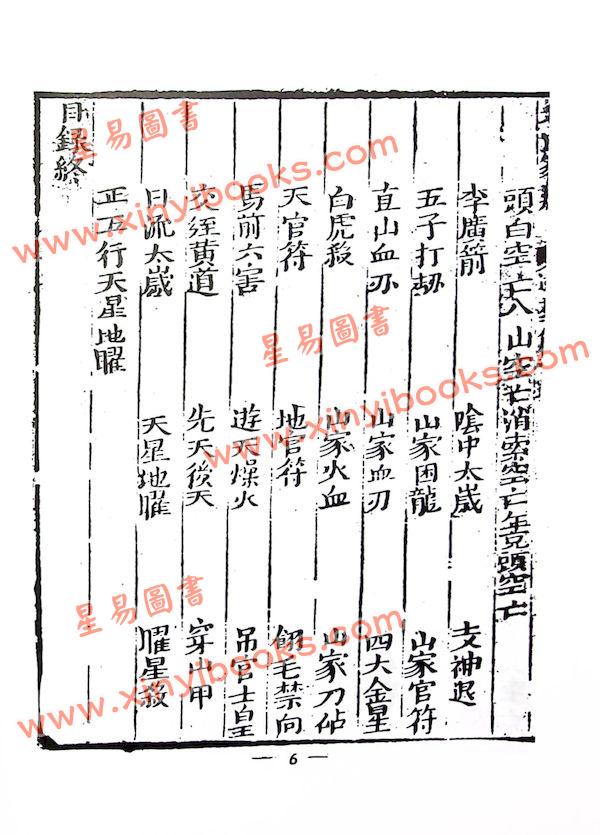 頭白空亡八山空亡消索空亡年克頭空亡
李廣箭 陰中太歲 支神退
五子打刼 山家困龍 山家官符
直山血刃 山家血刃 四大金星
白虎殺 山家火血 山家刀砧
天官符 地官符 翎毛禁向
馬前六害 遊天燥火 吊宫土皇
交𡊮黄道 先天後天 穿山甲
日流太歲 天星地曜 曜星殺
正五行天星地曜
目録終
— 6 —
星易圖書
www.xinyibooks.com
星易圖書
www.xinyibooks.com
星易圖書
www.xinyibooks.com